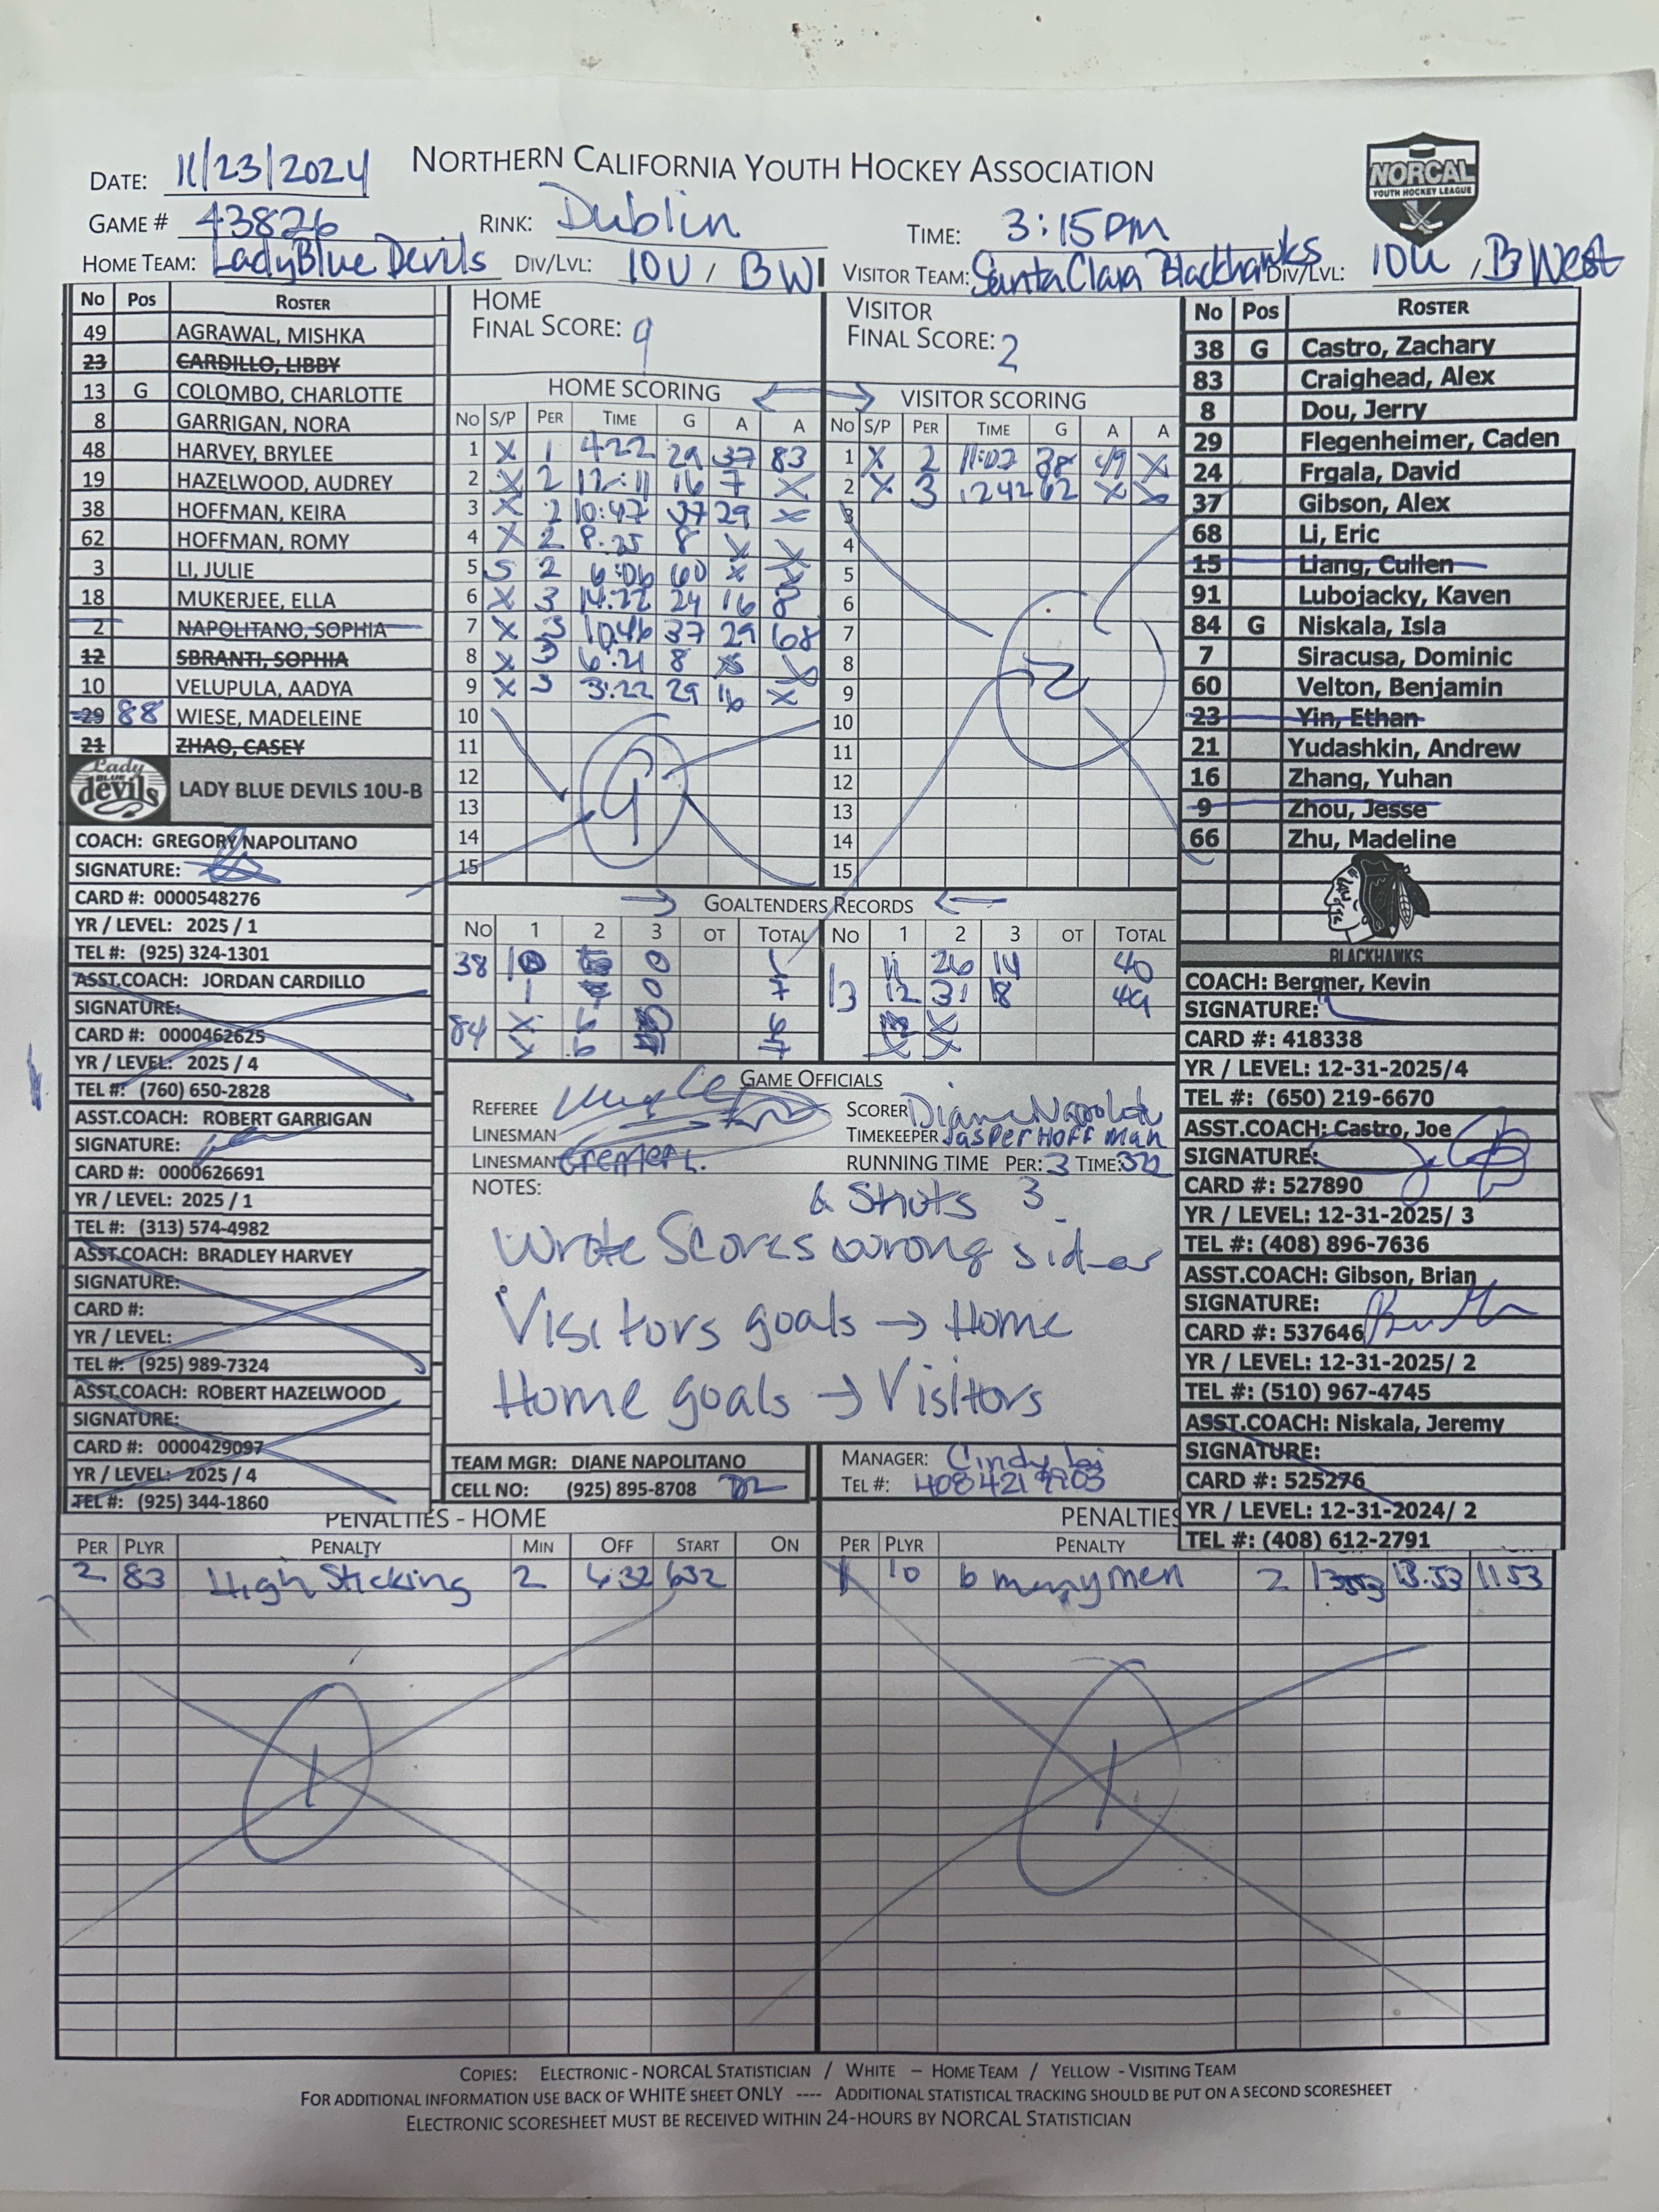 NORTHERN CALIFORNIA YOUTH HOCKEY ASSOCIATION
NORCAL
YOUTH HOCKEY LEAGUE
DATE: 11/23/2024
GAME # 43826 RINK: Dublin TIME: 3:15PM
HOME TEAM: Lady Blue Devils DIV/LVL: 10U / BW VISITOR TEAM: Santa Clara Blackhawks DIV/LVL: 10U / B West
No Pos ROSTER
49 AGRAWAL, MISHKA
23 CARDILLO, LIBBY
13 G COLOMBO, CHARLOTTE
8 GARRIGAN, NORA
48 HARVEY, BRYLEE
19 HAZELWOOD, AUDREY
38 HOFFMAN, KEIRA
62 HOFFMAN, ROMY
3 LI, JULIE
18 MUKERJEE, ELLA
2 NAPOLITANO, SOPHIA
12 SBRANTI, SOPHIA
10 VELUPULA, AADYA
29 88 WIESE, MADELEINE
21 ZHAO, CASEY
Lady BLUE devils
LADY BLUE DEVILS 10U-B
COACH: GREGORY NAPOLITANO
SIGNATURE:
CARD #: 0000548276
YR / LEVEL: 2025 / 1
TEL #: (925) 324-1301
ASST.COACH: JORDAN CARDILLO
SIGNATURE:
CARD #: 0000462625
YR / LEVEL: 2025 / 4
TEL #: (760) 650-2828
ASST.COACH: ROBERT GARRIGAN
SIGNATURE:
CARD #: 0000626691
YR / LEVEL: 2025 / 1
TEL #: (313) 574-4982
ASST.COACH: BRADLEY HARVEY
SIGNATURE:
CARD #:
YR / LEVEL:
TEL #: (925) 989-7324
ASST.COACH: ROBERT HAZELWOOD
SIGNATURE:
CARD #: 0000429097
YR / LEVEL: 2025 / 4
TEL #: (925) 344-1860
HOME
FINAL SCORE: 9
HOME SCORING
No S/P PER TIME G A A
1 X 1 4:22 29 37 83
2 X 2 12:11 16 7 X
3 X 2 10:47 37 29 X
4 X 2 8:25 8 X X
5 S 2 6:06 60 X X
6 X 3 14:22 24 16 8
7 X 3 10:46 37 29 68
8 X 3 6:21 8 X X
9 X 3 3:22 29 16 X
10
11
12
13
14
15
9
VISITOR
FINAL SCORE: 2
VISITOR SCORING
No S/P PER TIME G A A
1 X 2 11:02 38 49 X
2 X 3 1242 62 X X
3
4
5
6
7
8
9
10
11
12
13
14
15
2
GOALTENDERS RECORDS
No 1 2 3 OT TOTAL No 1 2 3 OT TOTAL
38 0
1 0
84 X 5
X 6
13 11 26 14 40
12 31 18 49
X
X X
GAME OFFICIALS
REFEREE
LINESMAN
LINESMAN
SCORER Diane Napolitano
TIMEKEEPER Jasper Hoffman
RUNNING TIME PER: 3 TIME: 322
NOTES: & Shots 3
Wrote Scores wrong sides
Visitors goals → Home
Home goals → Visitors
TEAM MGR: DIANE NAPOLITANO
CELL NO: (925) 895-8708
MANAGER: Cindy
TEL #: 408 421 9903
No Pos ROSTER
38 G Castro, Zachary
83 Craighead, Alex
8 Dou, Jerry
29 Flegenheimer, Caden
24 Frgala, David
37 Gibson, Alex
68 Li, Eric
15 Liang, Cullen
91 Lubojacky, Kaven
84 G Niskala, Isla
7 Siracusa, Dominic
60 Velton, Benjamin
23 Yin, Ethan
21 Yudashkin, Andrew
16 Zhang, Yuhan
9 Zhou, Jesse
66 Zhu, Madeline
BLACKHAWKS
COACH: Bergner, Kevin
SIGNATURE:
CARD #: 418338
YR / LEVEL: 12-31-2025/4
TEL #: (650) 219-6670
ASST.COACH: Castro, Joe
SIGNATURE:
CARD #: 527890
YR / LEVEL: 12-31-2025/ 3
TEL #: (408) 896-7636
ASST.COACH: Gibson, Brian
SIGNATURE:
CARD #: 537646
YR / LEVEL: 12-31-2025/ 2
TEL #: (510) 967-4745
ASST.COACH: Niskala, Jeremy
SIGNATURE:
CARD #: 525276
YR / LEVEL: 12-31-2024/ 2
TEL #: (408) 612-2791
PENALTIES - HOME
PER PLYR PENALTY MIN OFF START ON
2 83 High Sticking 2 6:32 632
1
PENALTIES
PER PLYR PENALTY
1 10 6 many men 2 13:53 11 53
1
COPIES: ELECTRONIC - NORCAL STATISTICIAN / WHITE – HOME TEAM / YELLOW - VISITING TEAM
FOR ADDITIONAL INFORMATION USE BACK OF WHITE SHEET ONLY ---- ADDITIONAL STATISTICAL TRACKING SHOULD BE PUT ON A SECOND SCORESHEET
ELECTRONIC SCORESHEET MUST BE RECEIVED WITHIN 24-HOURS BY NORCAL STATISTICIAN